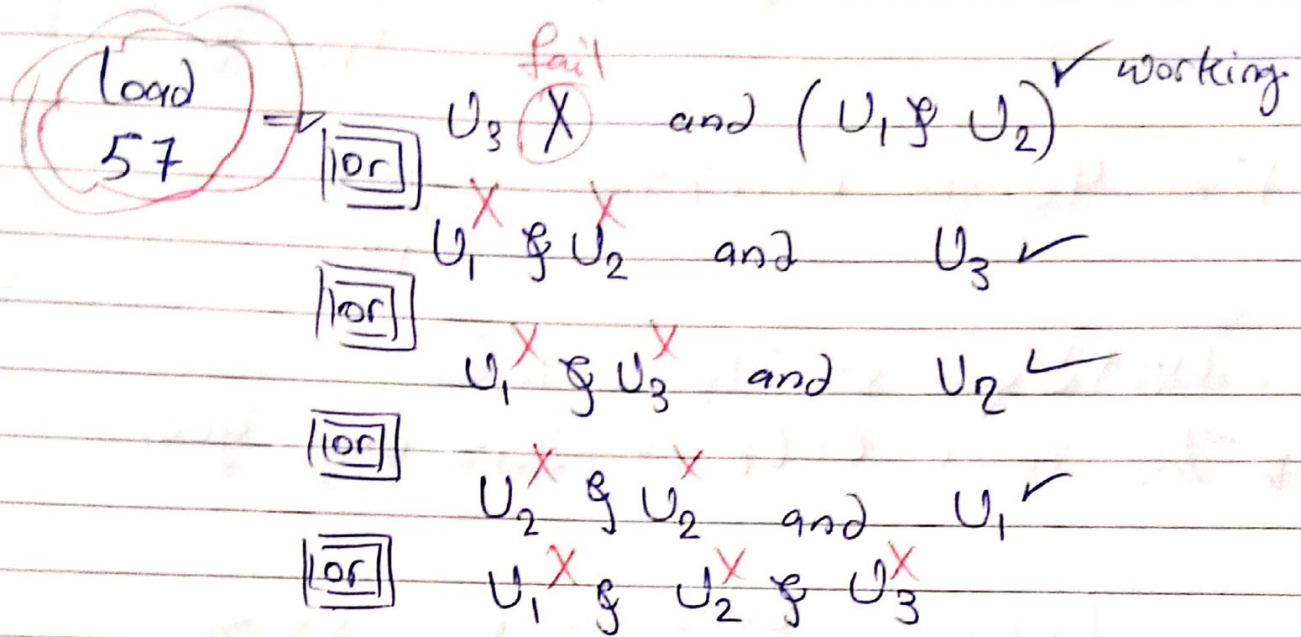 fail
load 57 ⇒ U₃ X and (U₁ & U₂) ✓ working.
or
U₁ X & U₂ X and U₃ ✓
or
U₁ X & U₃ X and U₂ ✓
or
U₂ X & U₂ X and U₁ ✓
or
U₁ X & U₂ X & U₃ X